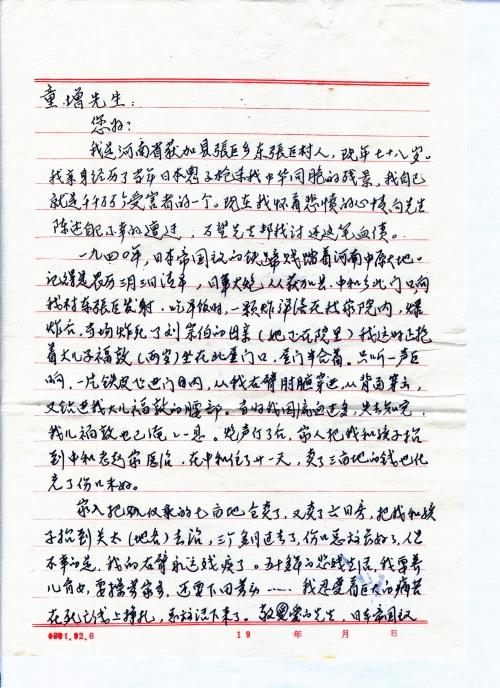 童增先生：
您好：
我是河南省获加县張巨乡东張巨村人，现年七十八岁。
我亲身经历了当年日本鬼子枪杀我中华同胞的残景，我自己
就是千千万万个受害者的一个。现在我怀着悲愤的心情向先生
陈述自己不幸的遭遇，万望先生帮我讨还这笔血债。
一九四0年，日本帝国主义的铁蹄践踏着河南中原大地。
记得是农历三月三日清早，日軍大炮从获加县、中和乡北门口向
我村东張巨发射，吃早饭时，一颗炸弹落在我家院内，爆
炸后，当场炸死了刘宗伯的母亲（她正在院里）我这时正抱
着大儿子福敖（两岁）坐在北屋门口，屋门半合着。只听一声巨
响，一片铁皮飞进门内，从我右臂肘腕穿进，从背面穿出，
又钻进我大儿福敖的腰部。当时我因流血过多，失去知觉，
我儿福敖也已奄奄一息。炮声停了后，家人把我和孩子抬
到中和老赵家医治，在中和住了廿一天，卖了三亩地的钱也化
完了伤口未好。
家人把仅有的七亩地全卖了，又卖了六间房，把我和孩
子抬到关太（地名）去治，三个多月过去了，伤口总算长好了，但
不幸的是，我的右臂永远残疾了。五十多年的悲惨生活，我要养
儿育女，要操劳家务，还要下田劳动……我忍受着巨大的病苦
在死亡线上挣扎，总算活下来了。敬爱的先生，日本帝国主义
0501.92.6 19 年 月 日